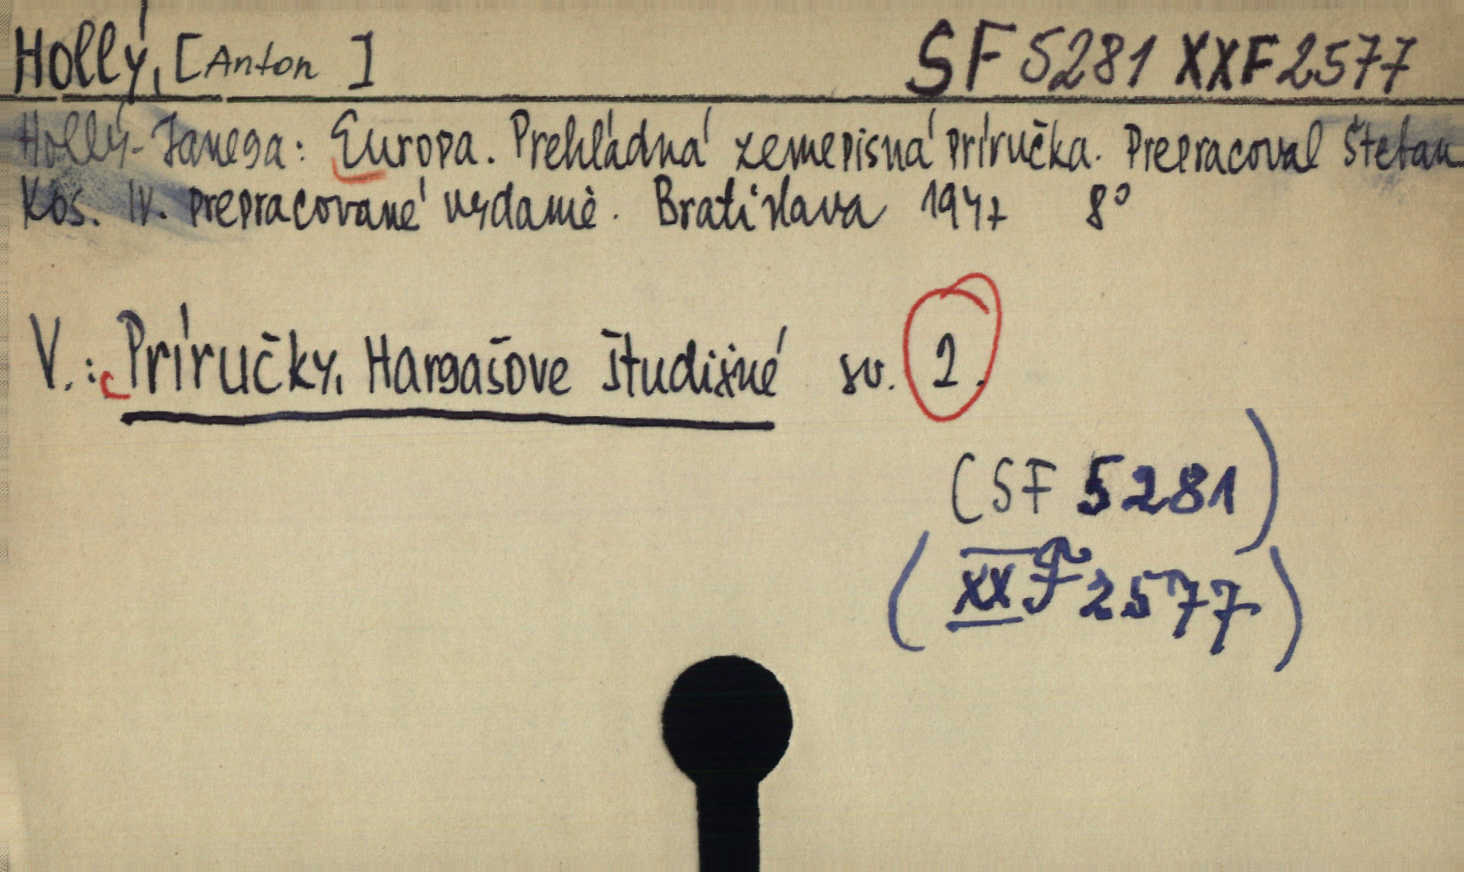 Hollý, [Anton ] SF 5281 XXF 2577
Hollý-Janega: Europa. Prehládná zemepisná príručka. Prepracoval Štefan
Kos. IV. prepracované vydanie. Bratislava 1947 8°
V.: Príručky, Hargašove študijné sv. 2.
(SF 5281)
(XXF 2577)